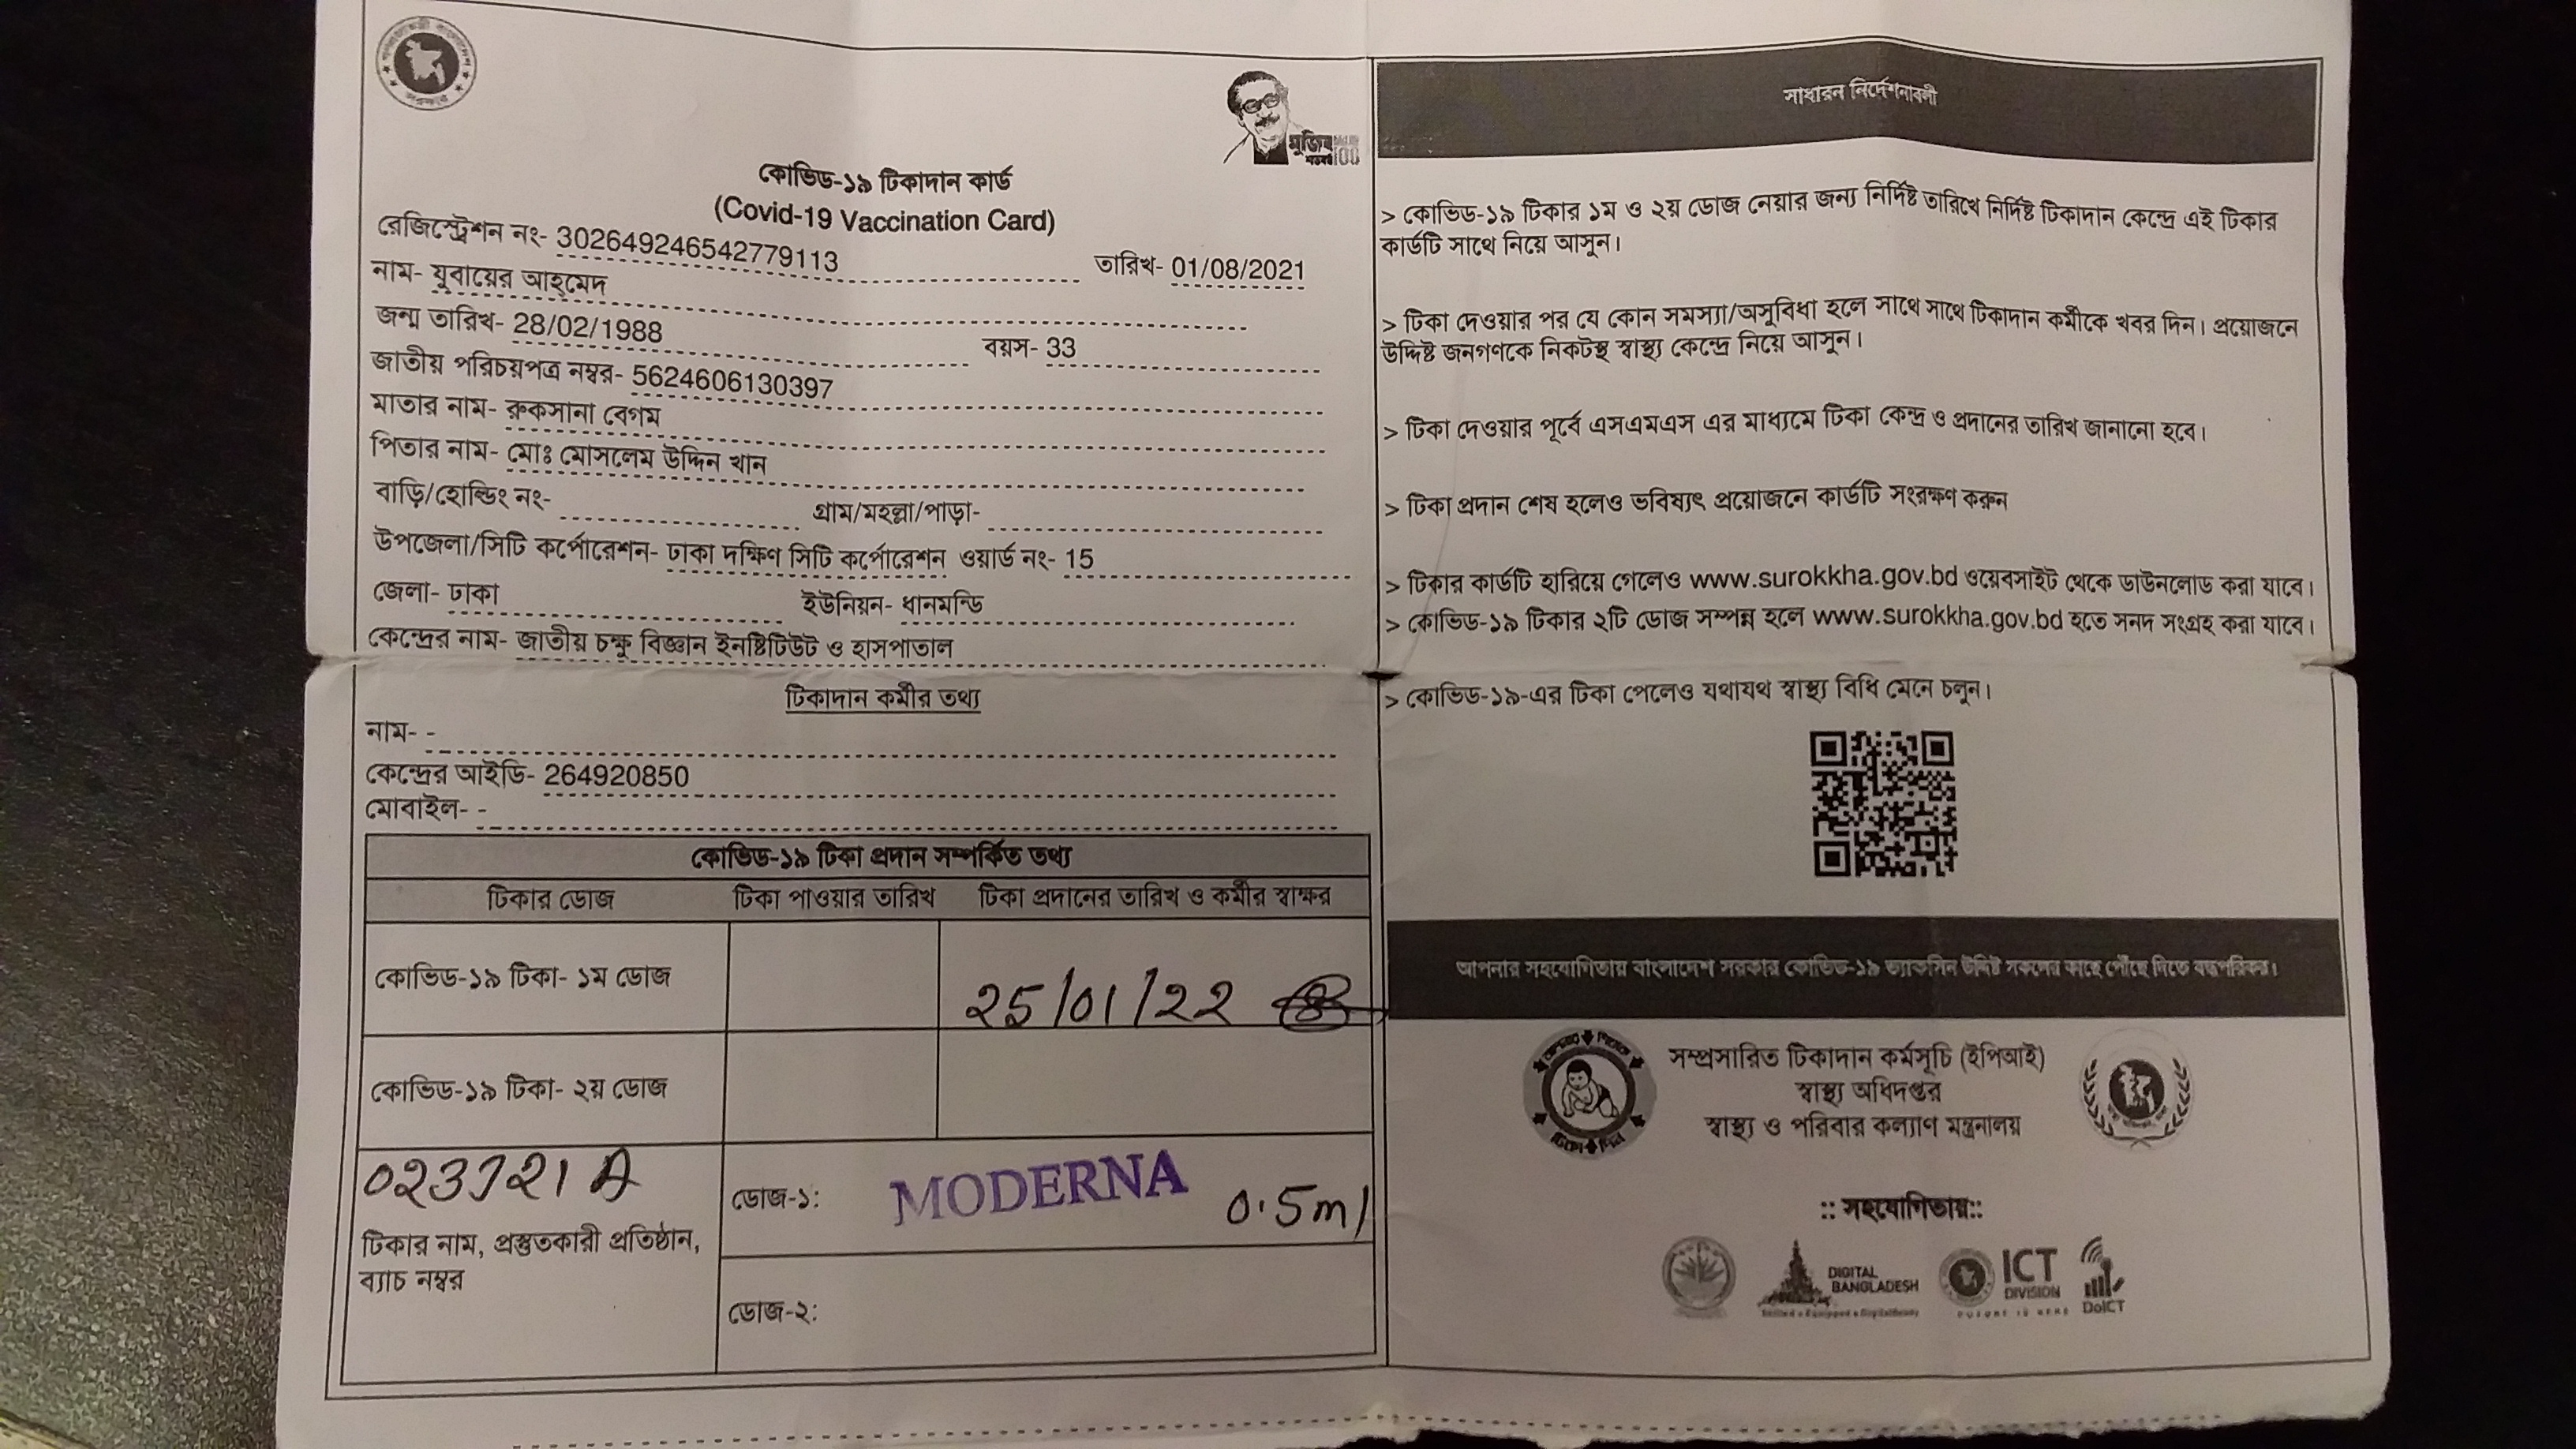 কোভিড-১৯ টিকাদান কার্ড
(Covid-19 Vaccination Card)
মুজিব
রেজিস্ট্রেশন নং- 302649246542779113 তারিখ- 01/08/2021
নাম- যুবায়ের আহমেদ
জন্ম তারিখ- 28/02/1988 বয়স- 33
জাতীয় পরিচয়পত্র নম্বর- 5624606130397
মাতার নাম- রুকসানা বেগম
পিতার নাম- মোঃ মোসলেম উদ্দিন খান
বাড়ি/হোল্ডিং নং- গ্রাম/মহল্লা/পাড়া-
উপজেলা/সিটি কর্পোরেশন- ঢাকা দক্ষিণ সিটি কর্পোরেশন ওয়ার্ড নং- 15
জেলা- ঢাকা ইউনিয়ন- ধানমন্ডি
কেন্দ্রের নাম- জাতীয় চক্ষু বিজ্ঞান ইনষ্টিটিউট ও হাসপাতাল
টিকাদান কর্মীর তথ্য
নাম- -
কেন্দ্রের আইডি- 264920850
মোবাইল- -
কোভিড-১৯ টিকা প্রদান সম্পর্কিত তথ্য
টিকার ডোজ টিকা পাওয়ার তারিখ টিকা প্রদানের তারিখ ও কর্মীর স্বাক্ষর
কোভিড-১৯ টিকা- ১ম ডোজ 25/01/22
কোভিড-১৯ টিকা- ২য় ডোজ
023721A
টিকার নাম, প্রস্তুতকারী প্রতিষ্ঠান,
ব্যাচ নম্বর
ডোজ-১: MODERNA 0.5ml
ডোজ-২:
সাধারন নির্দেশনাবলী
> কোভিড-১৯ টিকার ১ম ও ২য় ডোজ নেয়ার জন্য নির্দিষ্ট তারিখে নির্দিষ্ট টিকাদান কেন্দ্রে এই টিকার
কার্ডটি সাথে নিয়ে আসুন।
> টিকা দেওয়ার পর যে কোন সমস্যা/অসুবিধা হলে সাথে সাথে টিকাদান কর্মীকে খবর দিন। প্রয়োজনে
উদ্দিষ্ট জনগণকে নিকটস্থ স্বাস্থ্য কেন্দ্রে নিয়ে আসুন।
> টিকা দেওয়ার পূর্বে এসএমএস এর মাধ্যমে টিকা কেন্দ্র ও প্রদানের তারিখ জানানো হবে।
> টিকা প্রদান শেষ হলেও ভবিষ্যৎ প্রয়োজনে কার্ডটি সংরক্ষণ করুন
> টিকার কার্ডটি হারিয়ে গেলেও www.surokkha.gov.bd ওয়েবসাইট থেকে ডাউনলোড করা যাবে।
> কোভিড-১৯ টিকার ২টি ডোজ সম্পন্ন হলে www.surokkha.gov.bd হতে সনদ সংগ্রহ করা যাবে।
> কোভিড-১৯-এর টিকা পেলেও যথাযথ স্বাস্থ্য বিধি মেনে চলুন।
আপনার সহযোগিতায় বাংলাদেশ সরকার কোভিড-১৯
সম্প্রসারিত টিকাদান কর্মসূচি (ইপিআই)
স্বাস্থ্য অধিদপ্তর
স্বাস্থ্য ও পরিবার কল্যাণ মন্ত্রনালয়
:: সহযোগিতায়::
DIGITAL
BANGLADESH
ICT
DIVISION
DoICT